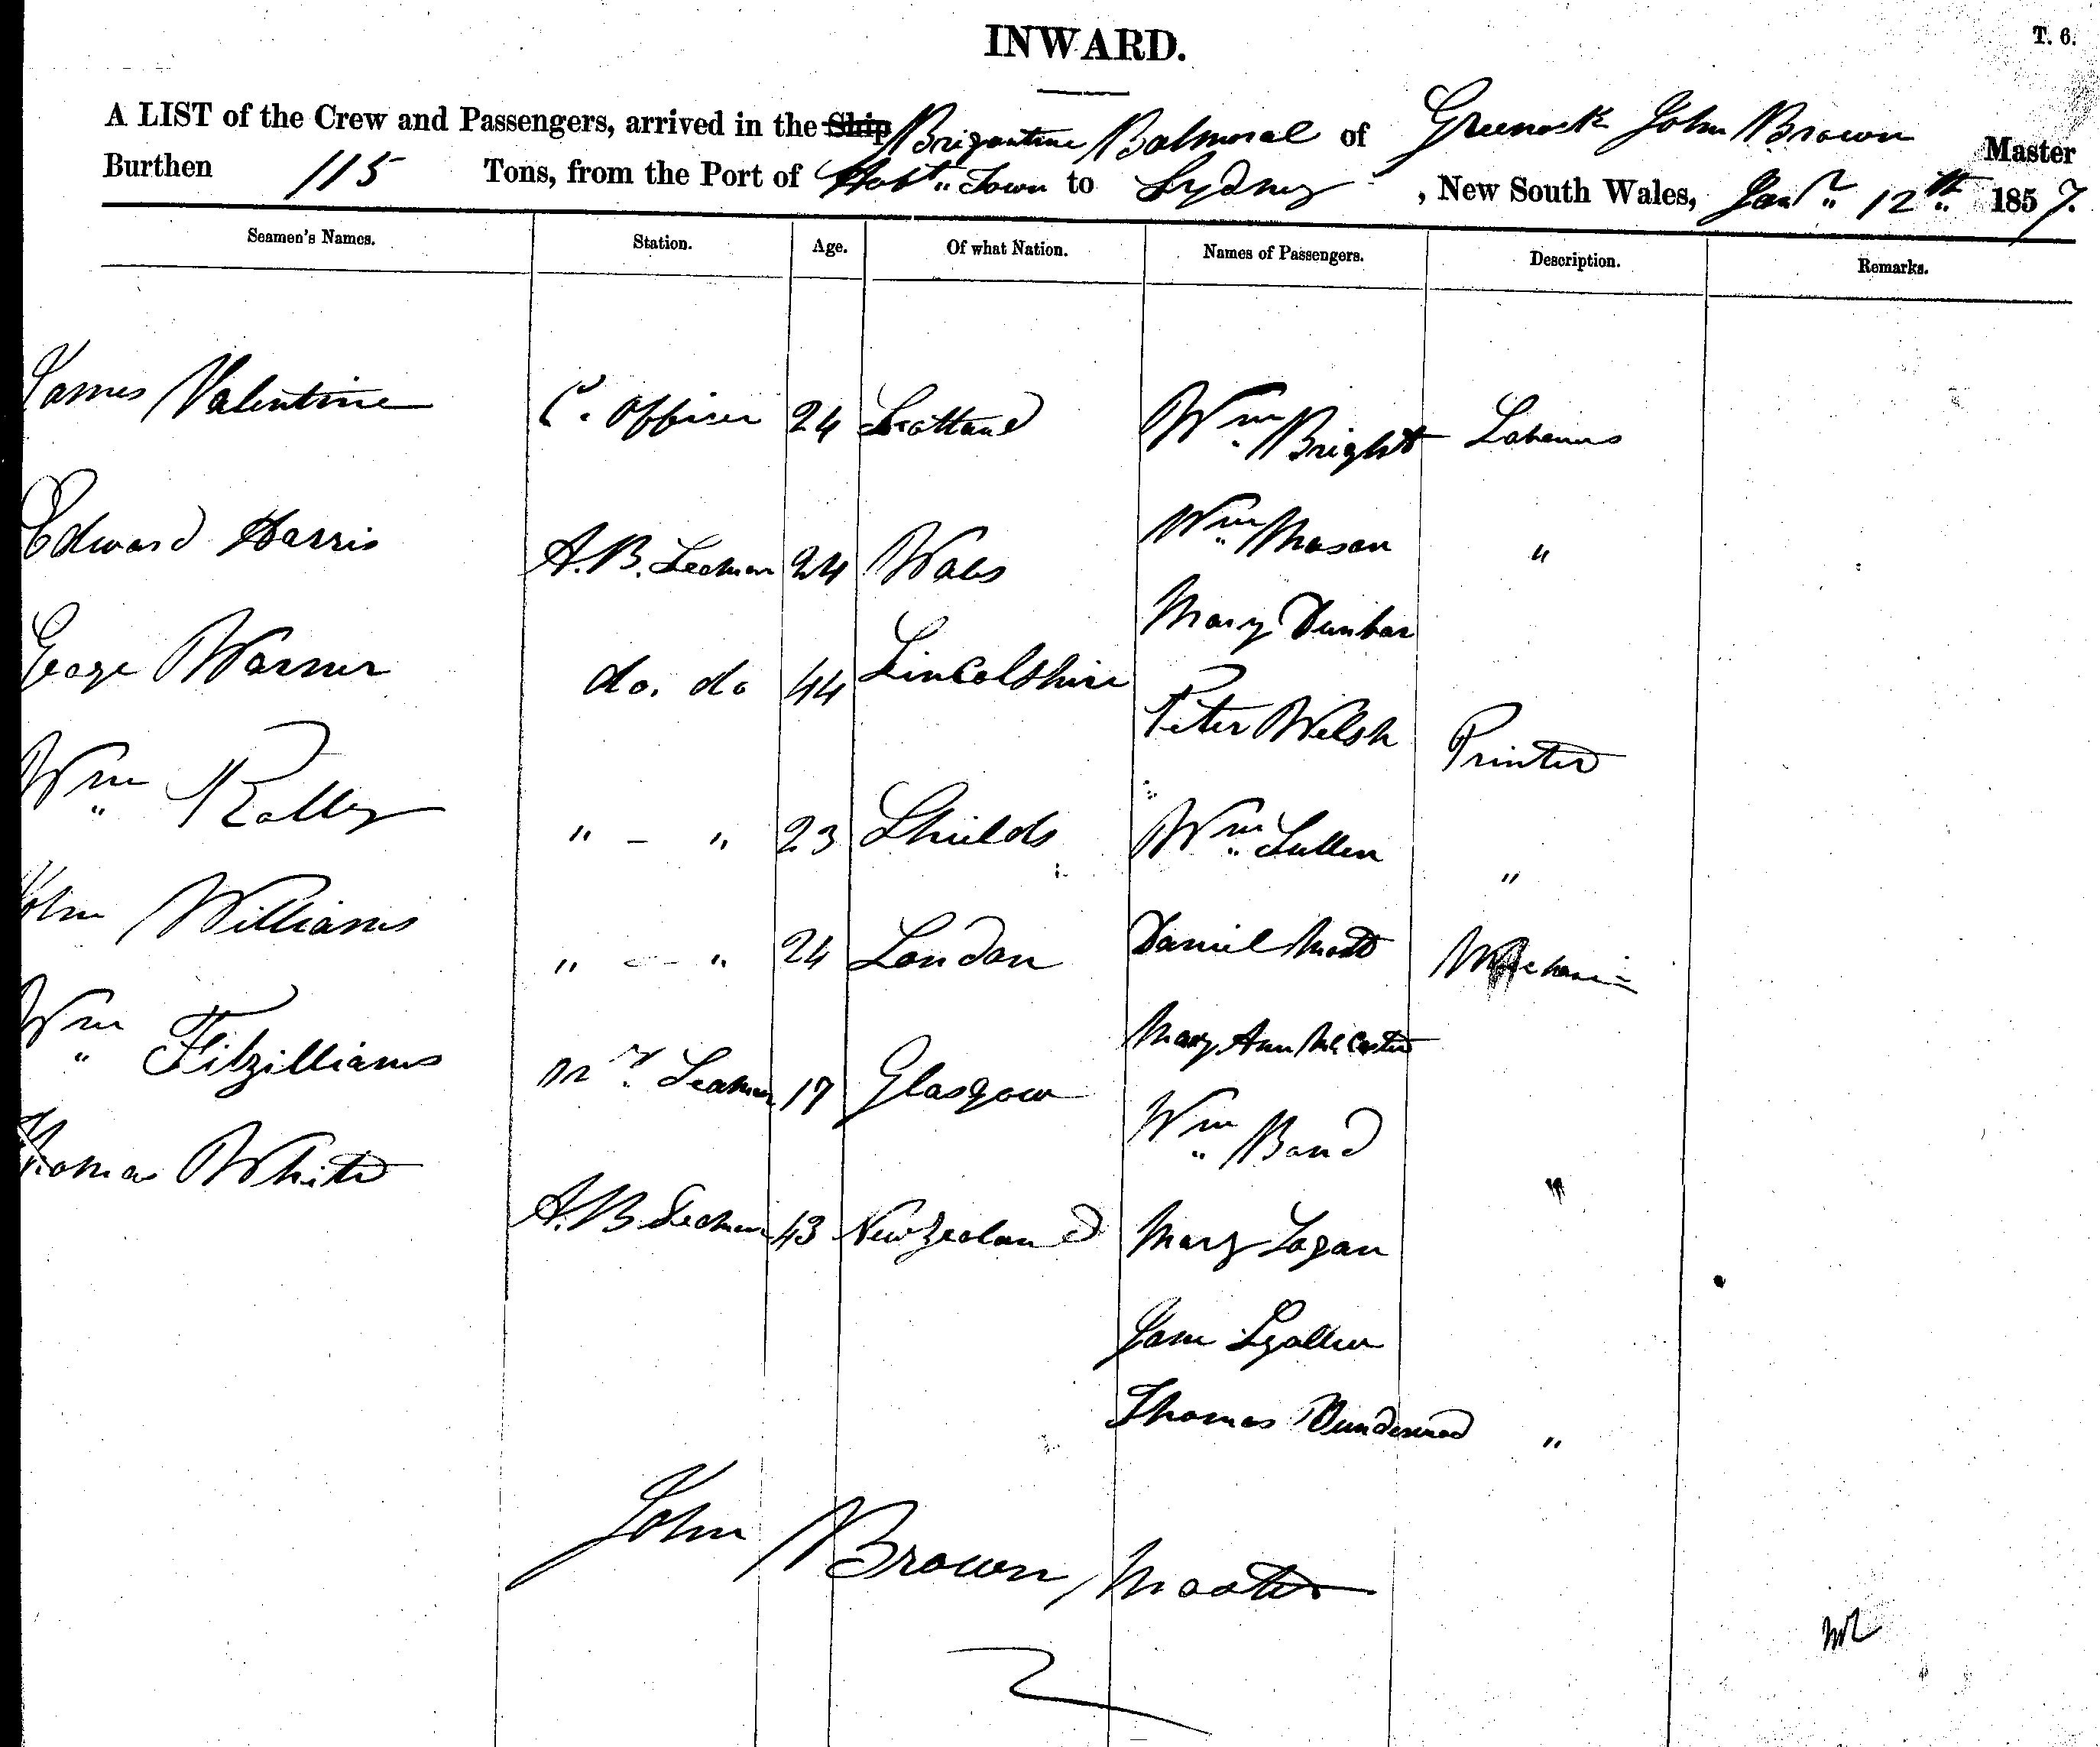 INWARD.
T. 6.
A LIST of the Crew and Passengers, arrived in the Ship Brigantine Balmoral of Greenock John Brown Master
Burthen 115 Tons, from the Port of Hobt. Town to Sydney, New South Wales, Jany. 12th 1857.
Seamen's Names. Station. Age. Of what Nation. Names of Passengers. Description. Remarks.
James Valentine C. Officer 24 Scotland Wm Bright Labourer
Edward Harris A.B. Seaman 24 Wales Wm Mason "
Mary Dunbar
George Warner do. do 44 Lincolshire Peter Welsh Printer
Wm " - " 23 Shields Wm "
John Williams " - " 24 London Daniel Mechanic
Mary Ann
Wm Fitzilliams Seaman 17 Glasgow Wm Band "
Thomas White A.B Seaman 43 New Zealand Mary Logan
Jane
Thomas "
John Brown, Master